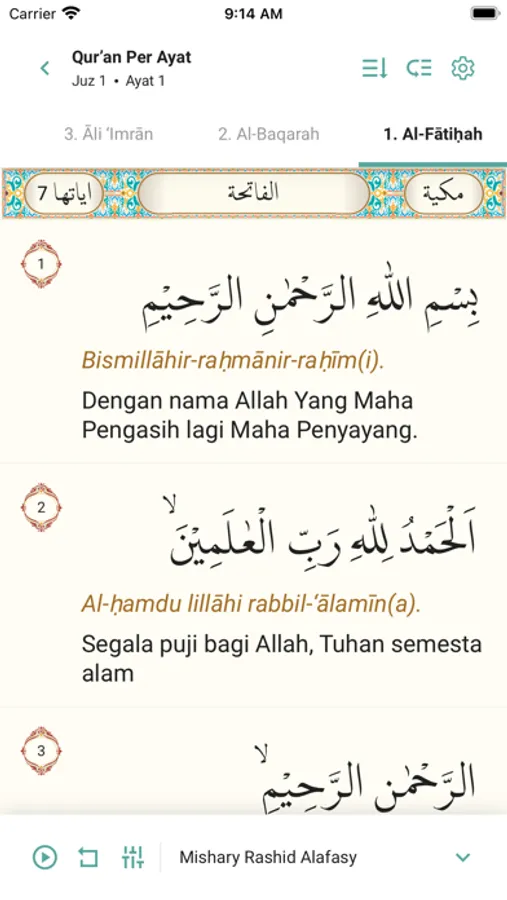 Carrier 9:14 AM
Qur’an Per Ayat
Juz 1 • Ayat 1
3. Āli ‘Imrān 2. Al-Baqarah 1. Al-Fātiḥah
مكية الفاتحة اياتها 7
1
بِسْمِ اللّٰهِ الرَّحْمٰنِ الرَّحِيْمِ
Bismillāhir-raḥmānir-raḥīm(i).
Dengan nama Allah Yang Maha
Pengasih lagi Maha Penyayang.
2
اَلْحَمْدُ لِلّٰهِ رَبِّ الْعٰلَمِيْنَۙ
Al-ḥamdu lillāhi rabbil-‘ālamīn(a).
Segala puji bagi Allah, Tuhan semesta
alam
3
الرَّحْمٰنِ الرَّحِيْمِۙ
Mishary Rashid Alafasy